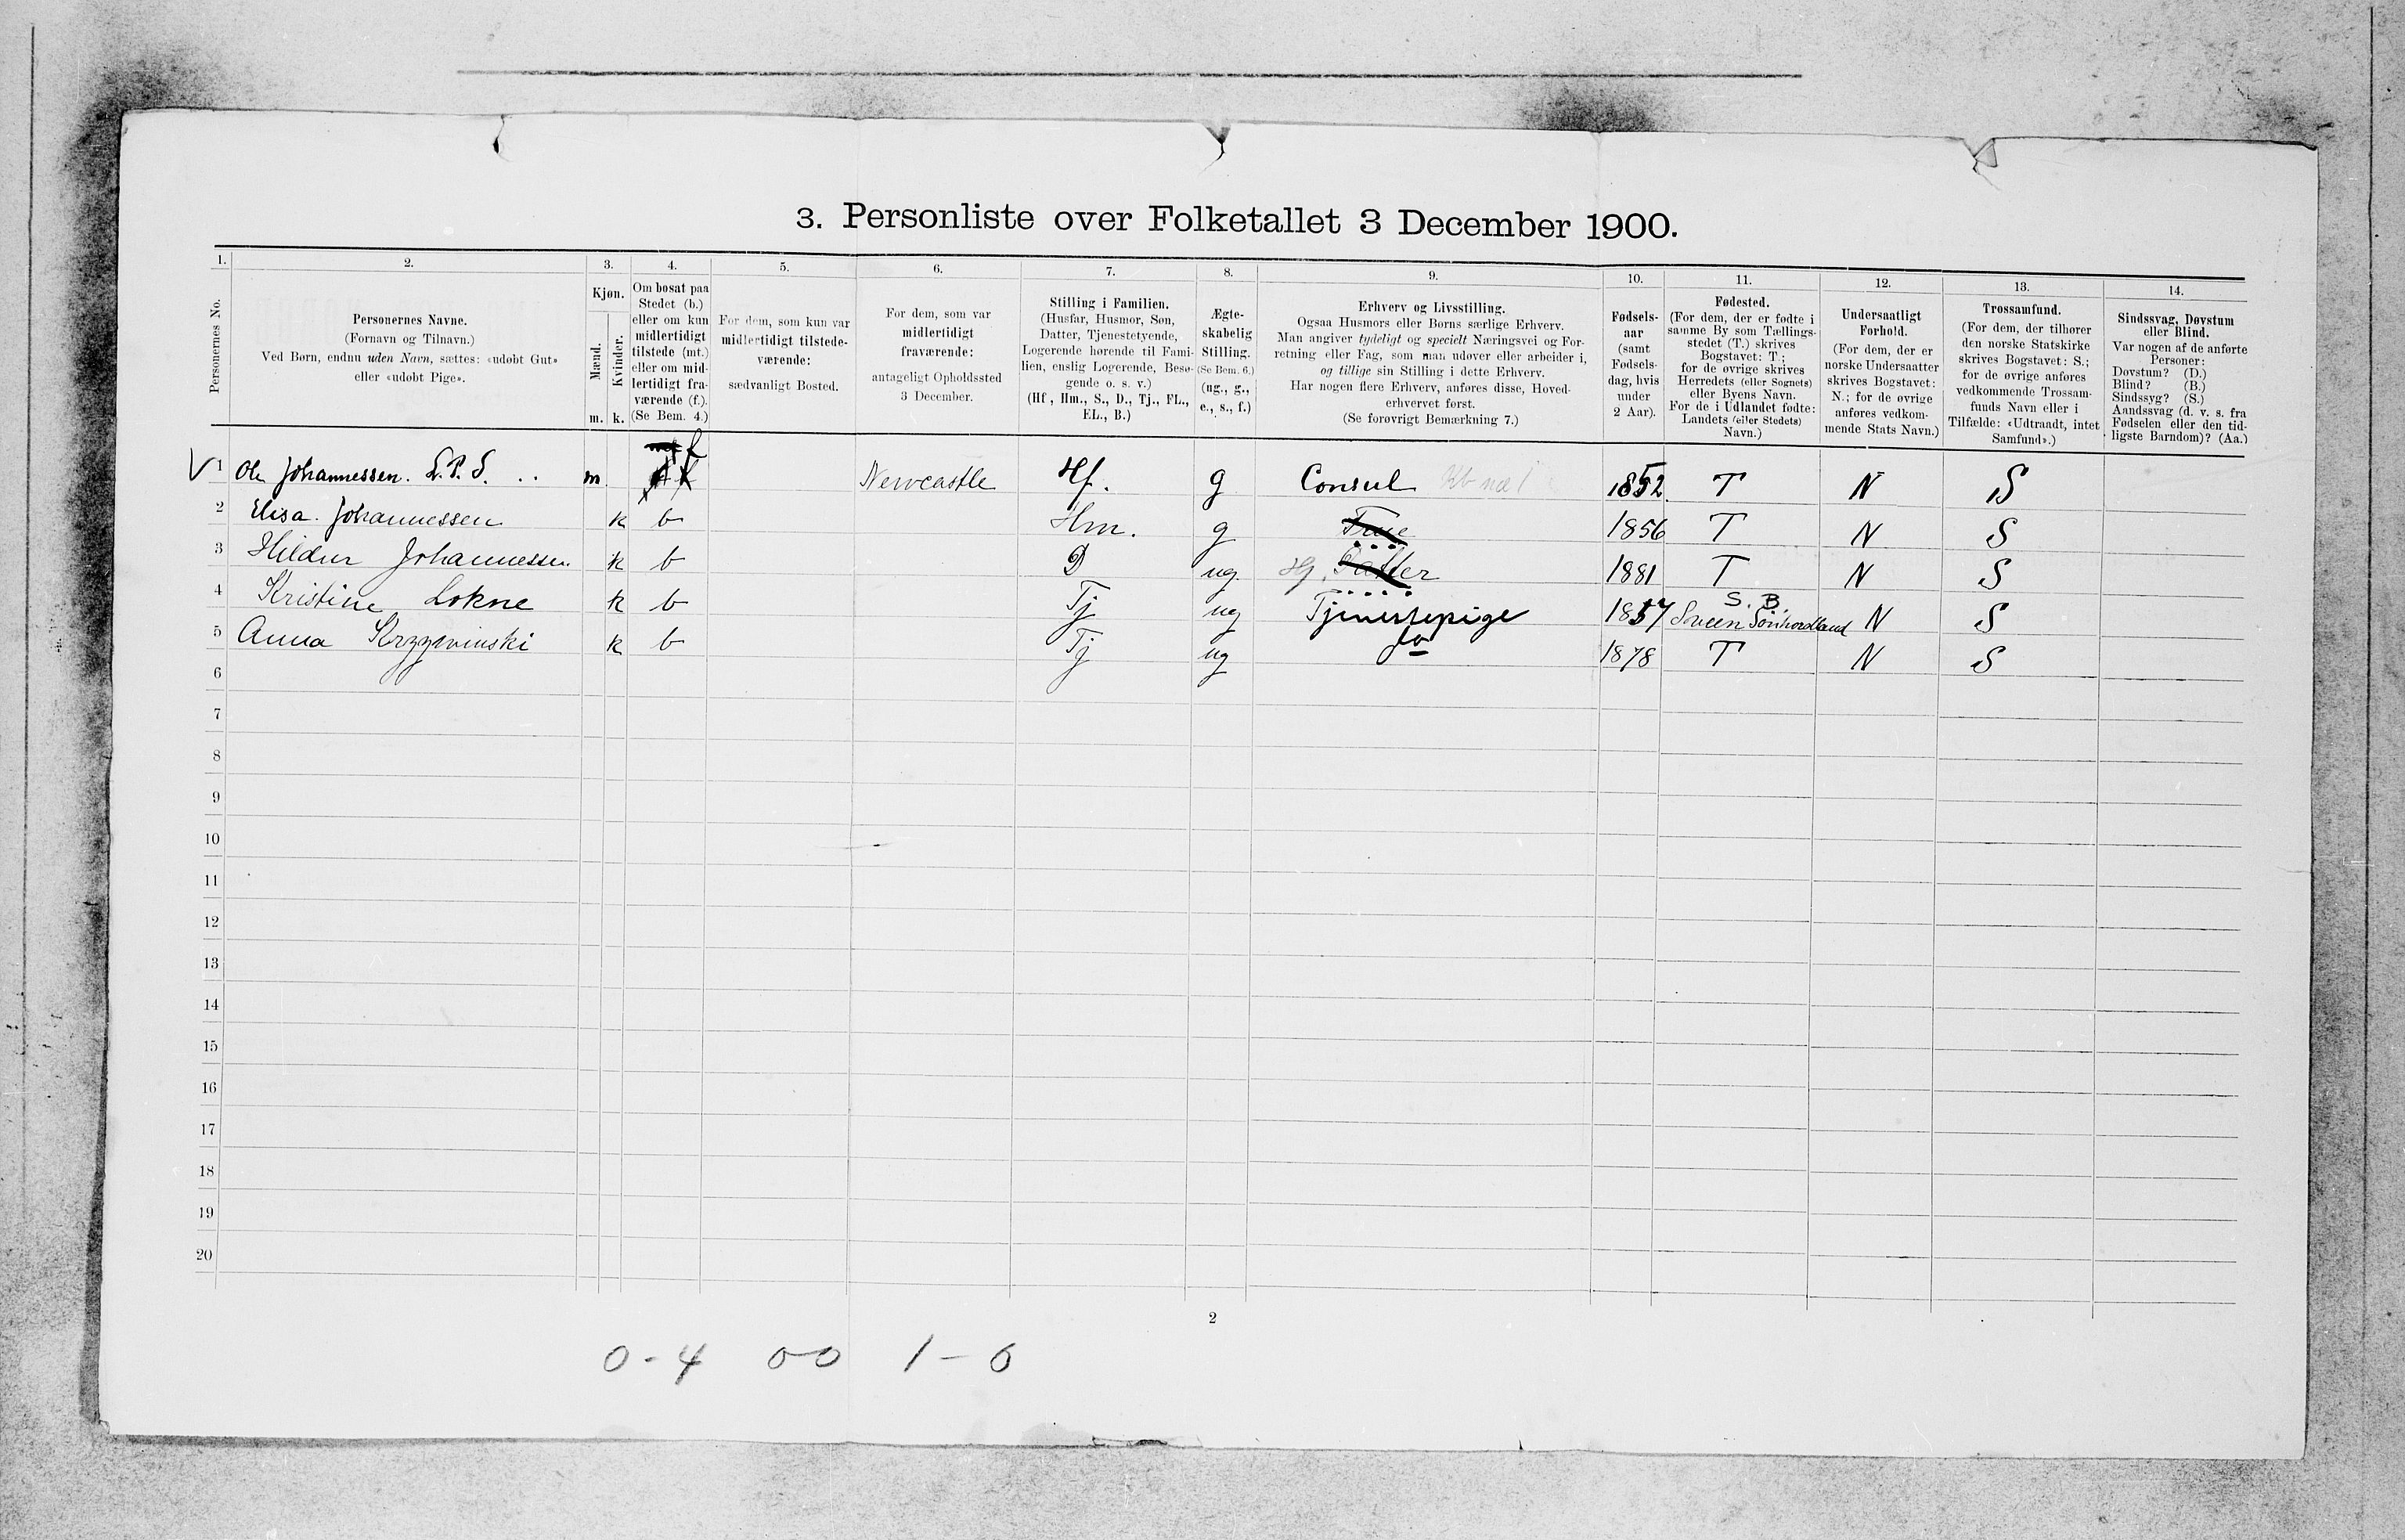 3. Personliste over Folketallet 3 December 1900.
1. 2. 3. 4. 5. 6. 7. 8. 9. 10. 11. 12. 13. 14.
Personernes No.
Personernes Navne.
(Fornavn og Tilnavn.)
Ved Børn, endnu uden Navn, sættes: «udøbt Gut»
eller «udøbt Pige».
Kjøn.
Mænd.
Kvinder.
m. k.
Om bosat paa
Stedet (b.)
eller om kun
midlertidigt
tilstede (mt.)
eller om mid-
lertidigt fra-
værende (f.).
(Se Bem. 4.)
For dem, som kun var
midlertidigt tilstede-
værende:
sædvanligt Bosted.
For dem, som var
midlertidigt
fraværende:
antageligt Opholdssted
3 December.
Stilling i Familien.
(Husfar, Husmor, Søn,
Datter, Tjenestetyende,
Logerende hørende til Fami-
lien, enslig Logerende, Besø-
gende o. s. v.)
(Hf., Hm., S., D., Tj., FL.,
EL., B.)
Ægte-
skabelig
Stilling.
(Se Bem. 6.)
(ug., g.,
e., s., f.)
Erhverv og Livsstilling.
Ogsaa Husmors eller Børns særlige Erhverv.
Man angiver tydeligt og specielt Næringsvei og For-
retning eller Fag, som man udøver eller arbeider i,
og tillige sin Stilling i dette Erhverv.
Har nogen flere Erhverv, anføres disse, Hoved-
erhvervet først.
(Se forøvrigt Bemærkning 7.)
Fødsels-
aar
(samt
Fødsels-
dag, hvis
under
2 Aar).
Fødested.
(For dem, der er fødte i
samme By som Tællings-
stedet (T.) skrives
Bogstavet: T.;
for de øvrige skrives
Herredets (eller Sognets)
eller Byens Navn.
For de i Udlandet fødte:
Landets (eller Stedets)
Navn.)
Undersaatligt
Forhold.
(For dem, der er
norske Undersaatter
skrives Bogstavet:
N.; for de øvrige
anføres vedkom-
mende Stats Navn.)
Trossamfund.
(For dem, der tilhører
den norske Statskirke
skrives Bogstavet: S.;
for de øvrige anføres
vedkommende Trossam-
funds Navn eller i
Tilfælde: «Udtraadt, intet
Samfund».)
Sindssvag, Døvstum
eller Blind.
Var nogen af de anførte
Personer:
Døvstum? (D.)
Blind? (B.)
Sindssyg? (S.)
Aandssvag (d. v. s. fra
Fødselen eller den tid-
ligste Barndom)? (Aa.)
1 Ole Johannessen. L.P.S. . . m. f Newcastle Hf. g Consul 1852. T N S
2 Elisa. Johannessen k b Hm. g Frue 1856 T N S
3 Hildur Johannessen. k b D ug. Datter 1881 T N S
S. B.
4 Kristine Lokne k b Tj ug Tjenestepige 1857 Sveen Sönhordland N S
5 Anna Krzywinski k b Tj ug do 1878 T N S
6
7
8
9
10
11
12
13
14
15
16
17
18
19
20
2
0-4 0-0 1-0